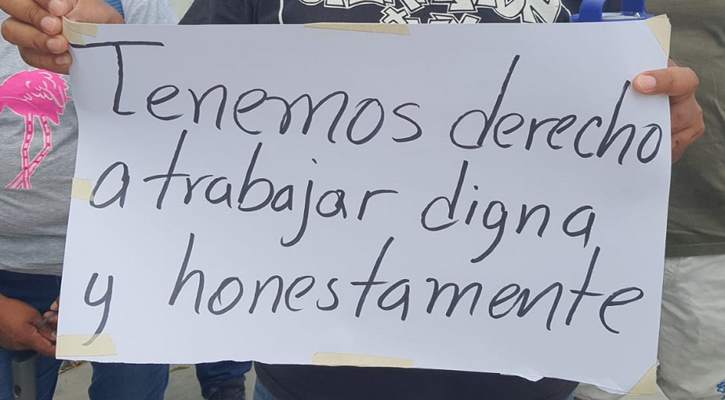 Tenemos derecho
a trabajar digna
y honestamente